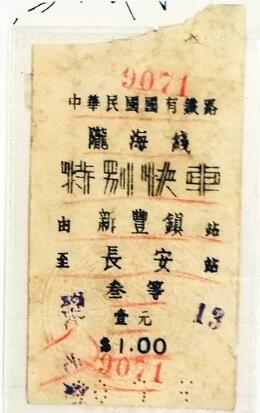 9071
中華民國國有鐵路
隴海綫
特别快車
由新豐鎮站
至長安站
叁等
壹元
13
$1.00
9071